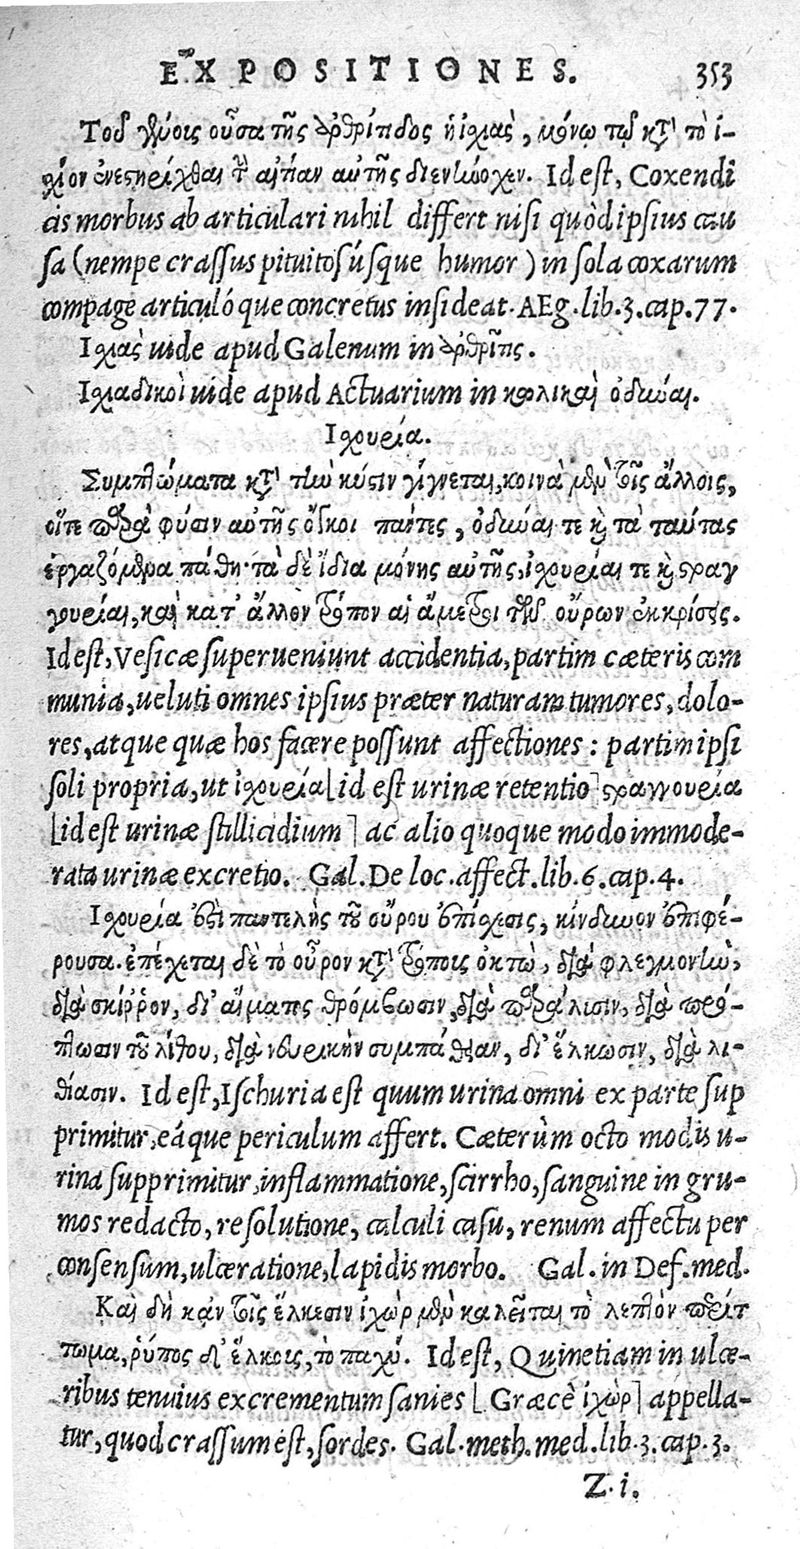 EXPOSITIONES. 353
Τοῦ γένους οὖσα τῆς ἀρθρίτιδος ἡ ἰσχιὰς, μόνῳ τῷ κατὰ τὸ ἰ-
σχίον ἐνεστηρίχθαι τὴν αἰτίαν αὐτῆς διενήνοχεν. Id est, Coxendi
cis morbus ab articulari nihil differt nisi quòd ipsius cau
sa (nempe crassus pituitosúsque humor) in sola coxarum
compage articulóque concretus insideat. AEg. lib. 3. cap. 77.
Ισχιὰς uide apud Galenum in ἀρθρῖτις.
Ισχιαδικοὶ uide apud Actuarium in κωλικαὶ ὀδύναι.
Ισχουρία.
Συμπτώματα κατὰ τὴν κύστιν γίγνεται, κοινὰ μὲν τοῖς ἄλλοις,
οἵτε παρὰ φύσιν αὐτῆς ὄγκοι πάντες, ὀδύναι τε καὶ τὰ ταύτας
ἐργαζόμενα πάθη· τὰ δὲ ἴδια μόνης αὐτῆς, ἰσχουρίαι τε καὶ στραγ
γουρίαι, καὶ κατ' ἄλλον τρόπον αἱ ἄμετροι τῶν οὔρων ἐκκρίσεις.
Id est, Vesicæ superueniunt accidentia, partim cæteris com
munia, ueluti omnes ipsius præter naturam tumores, dolo-
res, atque quæ hos facere possunt affectiones: partim ipsi
soli propria, ut ἰσχουρία [id est urinæ retentio] στραγγουρία
[id est urinæ stillicidium] ac alio quoque modo immode-
rata urinæ excretio. Gal. De loc. affect. lib. 6. cap. 4.
Ισχουρία ἐστὶ παντελὴς τοῦ οὔρου ἐπίσχεσις, κίνδυνον ἐπιφέ-
ρουσα. ἐπέχεται δὲ τὸ οὖρον κατὰ τρόπους ὀκτὼ, διὰ φλεγμονὴν,
διὰ σκίῤῥον, δι' αἵματος θρόμβωσιν, διὰ παράλυσιν, διὰ παρέμ-
πτωσιν τοῦ λίθου, διὰ νεφριτικὴν συμπάθειαν, δι' ἕλκωσιν, διὰ λι-
θίασιν. Id est, Ischuria est quum urina omni ex parte sup
primitur, eáque periculum affert. Cæterùm octo modis u-
rina supprimitur, inflammatione, scirrho, sanguine in gru-
mos redacto, resolutione, calculi casu, renum affectu per
consensum, ulceratione, lapidis morbo. Gal. in Def. med.
Καὶ δὴ κἀν τοῖς ἕλκεσιν ἰχὼρ μὲν καλεῖται τὸ λεπτὸν περίτ
τωμα, ῥύπος δ' ἕλκους, τὸ παχύ. Id est, Quinetiam in ulce-
ribus tenuius excrementum sanies [Græcè ἰχὼρ] appella-
tur, quod crassum est, sordes. Gal. meth. med. lib. 3. cap. 3.
Z. i.